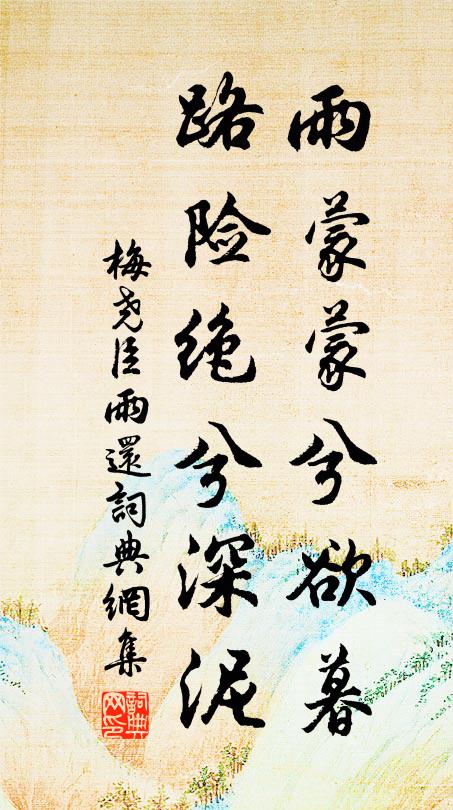 雨蒙蒙兮欲暮
路险绝兮深泥
梅尧臣雨還詞典網集
詞典网印